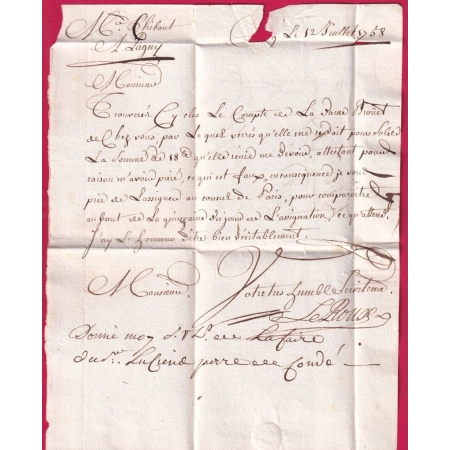 Mr. Thibaut
A Lagny
Le 12 Juillet 1758
Monsieur
Trouverés Cy clos Le Compte de La Dame
de Chez vous, par Lequel verrés qu'elle me redoit pour Solde
La Somme de 18 qu'elle renie me devoir, attestant pour
raison m'avoir paié, ce qui est faux, en consequence je vous
prie de L'assigner au consul de Paris, pour comparoître
au bout de La quinzaine du jour de L'assignation, ce qu'attend
J'ay Le honneur d'être bien véritablement
Monsieur
Votre tres humble Serviteur
LeRoux
Donné moy de Lafaire
du Sr. Lucien pierre de Condé